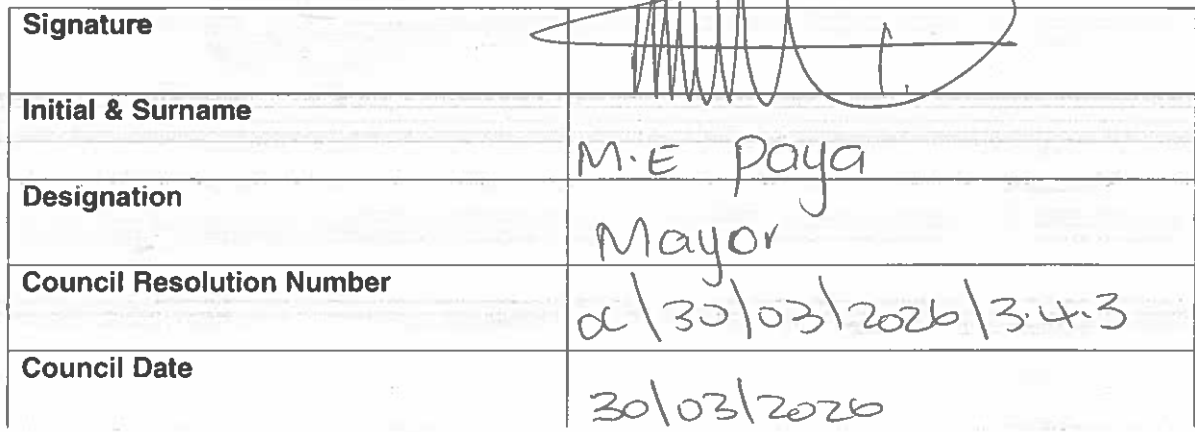 Signature
Initial & Surname
M.E Paya
Designation
Mayor
Council Resolution Number
oc\30\03\2026\3.4.3
Council Date
30\03\2026